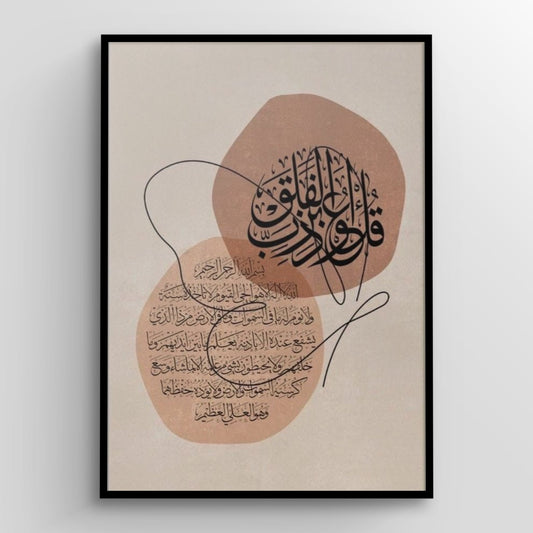 قل أعوذ برب الفلق
بسم الله الرحمن الرحيم
الله لا إله إلا هو الحي القيوم لا تأخذه سنة
ولا نوم له ما في السموات وما في الأرض من ذا الذي
يشفع عنده إلا بإذنه يعلم ما بين أيديهم وما
خلفهم ولا يحيطون بشيء من علمه إلا بما شاء وسع
كرسيه السموات والأرض ولا يؤده حفظهما
وهو العلي العظيم